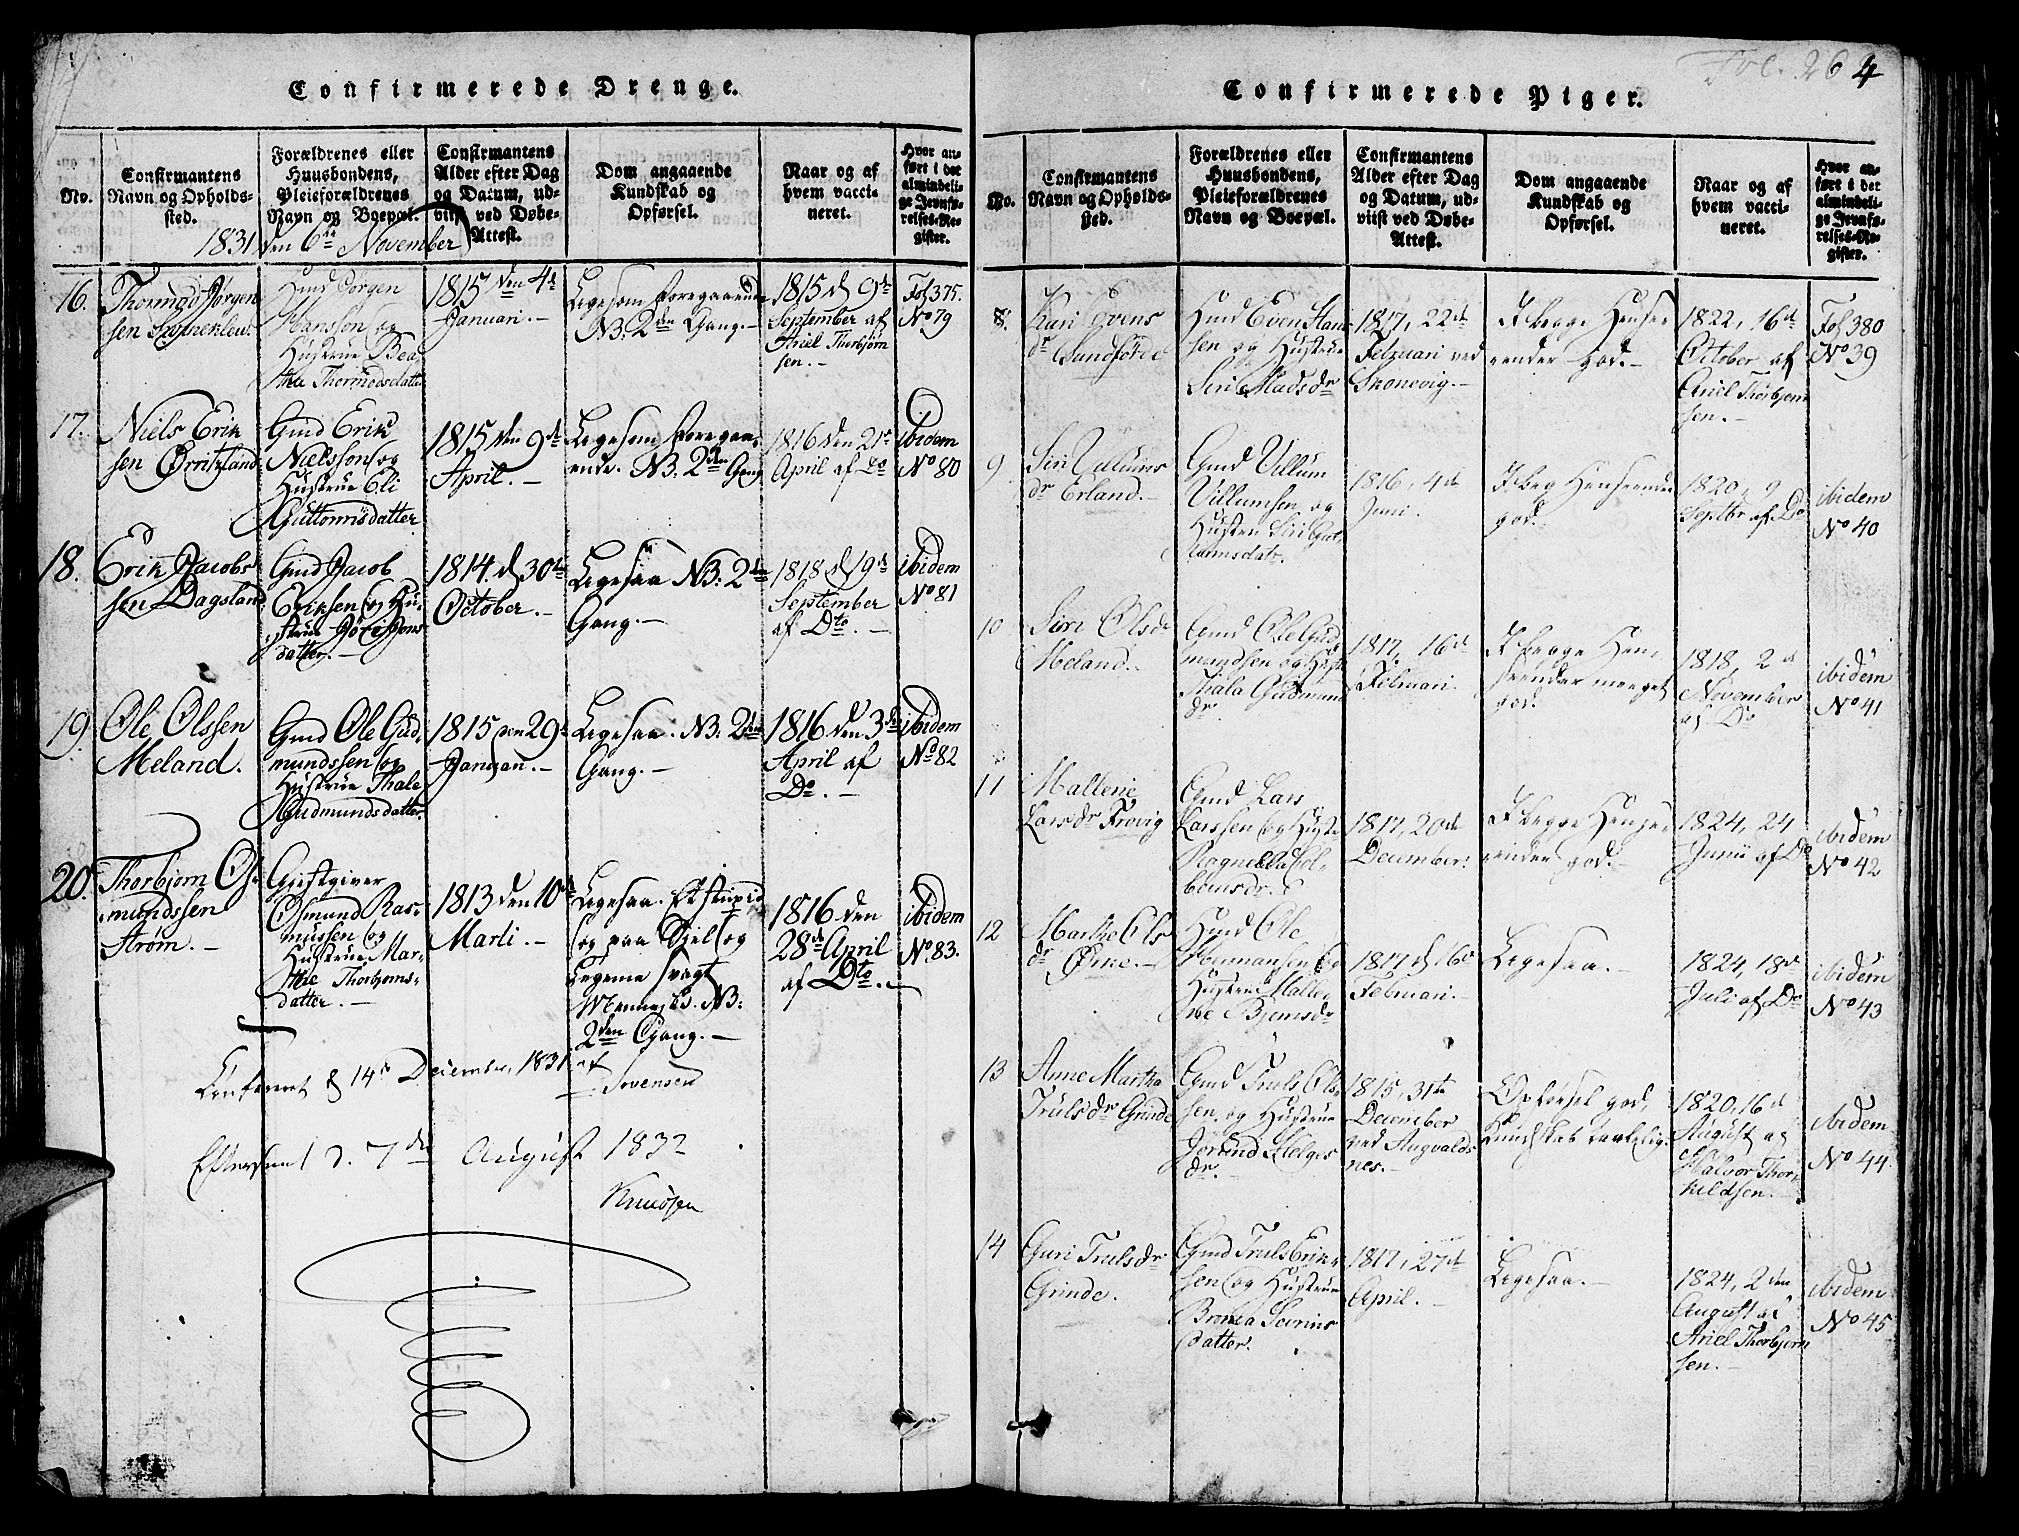 Confirmerede Drenge.
No.
Confirmantens
Navn og Opholds-
sted.
Forældrenes eller
Huusbondens,
Pleieforældrenes
Navn og Boepæl.
Confirmantens
Alder efter Dag
og Datum, ud-
viist ved Døbe-
Attest.
Dom angaaende
Kundskab og
Opførsel.
Naar og af
hvem vacci-
neret.
Hvor an-
ført i det
almindeli-
ge Jevnfø-
relses-Re-
gister.
1831 den 6te November
16.
Thormod Jørgen
sen
Huusmd Jørgen
Hanssøn og
Hustrue Bea-
the Thormodsdatter
1815 den 4de
Januari. -
Ligesom Foregaaende
NB: 2den Gang. -
1815 d 9de
September af
Ariel Thorbjørn
sen. -
Fol 375.
No 79
17.
Niels Erik
sen Ørritzland
Gmd Erik
Nielssøn og
Hustrue Eli
Guttormsdatter
1815 den 9de
April. -
Ligesom Foregaa-
ende. NB: 2den Gang
1816 den 21de
April af Do
ibidem
No 80
18.
Erik Jacobs
sen Dagsland
Gmd Jacob
Eriksen og Hu-
strue Jons
datter. -
1814 d 30te
October. -
Ligesaa NB: 2den
Gang. -
1818 d 19de
September
af Dto. -
ibidem
No 81
19.
Ole Olssen
Meland.
Gmd Ole Gud-
mundssen og
Hustrue Thale
Gudmundsdatter.
1815 den 29de
Januari. -
Ligesaa. NB: 2den
Gang. -
1816 den 3de
April af
Do. -
ibidem
No 82
20.
Thorbjørn Os-
mundssen
Strøm. -
Gjestgiver
Osmund Ras-
mussen og
Hustrue Mar-
the Thorbjørns-
datter. -
1813 den 10de
Marti. -
Ligesaa. Et stupid
og paa Siel og
Legeme svagt
Menneske. NB:
2den Gang. -
1816 den
28de April
af Dto. -
ibidem
No 83.
Confereret d 14de December 1831 af
Sørensen
Efterseet d. 7de August 1832
Knudsen
Fol. 264
Confirmerede Piger.
No.
Confirmantens
Navn og Opholds-
sted.
Forældrenes eller
Huusbondens,
Pleieforældrenes
Navn og Boepæl.
Confirmantens
Alder efter Dag
og Datum, ud-
viist ved Døbe-
Attest.
Dom angaaende
Kundskab og
Opførsel.
Naar og af
hvem vacci-
neret.
Hvor an-
ført i det
almindeli-
ge Jevnfø-
relses-Re-
gister.
8.
Kari Evens
dr Sundførde
Huusmd Even Han-
sen og Hustrue
Siri Madsdr
1817, 22de
Februari ved
Skonevig. -
I begge Henseer
eender god. -
1822, 16de
October af
Ariel Thorbjørn
sen. -
Fol 380
No 39
9
Siri Villums
dr Erland. -
Gmd Villum
Villumsen og
Hustrue Siri Gut-
tormsdatr.
1816, 4de
Juni.
I beg Henseender
god. -
1820, 9
Septbr af Do
ibidem
No 40
10
Siri Olsdr
Meland.
Gmd Ole Gud
mundsen og Hustr
Thala Gudmund
dr.
1817, 16de
Februari.
I begge Hen-
seender meeget
god.
1818, 2de
November
af Do
ibidem
No 41
11
Mallene
Larsdr Frøvig
Gmd Lars
Larssen og Hustr
Ragnilla Kol-
bensdr.
1817, 20de
December.
I begge Hense-
eender god. -
1824, 24
Junii af Do
ibidem
No 42
12
Marthe Ols
dr Ørke. -
Huusmd Ole
Hermansen og
Hustrue Malle-
ne Bjørnsdr
1817 d 16de
Februari. -
Ligesaa. -
1824, 18de
Juli af Do
ibidem
No 43
13
Anne Martha
Trulsdr Grinde
Gmd Truls Ols-
sen og Hustrue
Jorund Helges
dr.
1815, 31te
December
ved Augvalds
nes. -
Opførsel god,
Kundskab taalelig.
1820, 16de
August af
Halvor Thor-
kildsen. -
ibidem
No 44.
14
Guri Trulsdr
Grinde.
Gmd Truls Erik-
sen og Hustrue
Bronla Sevrins
datter.
1817, 27de
April. -
Ligesaa. -
1824, 2den
August af
Ariel Thorbjørn
sen. -
ibidem
No 45